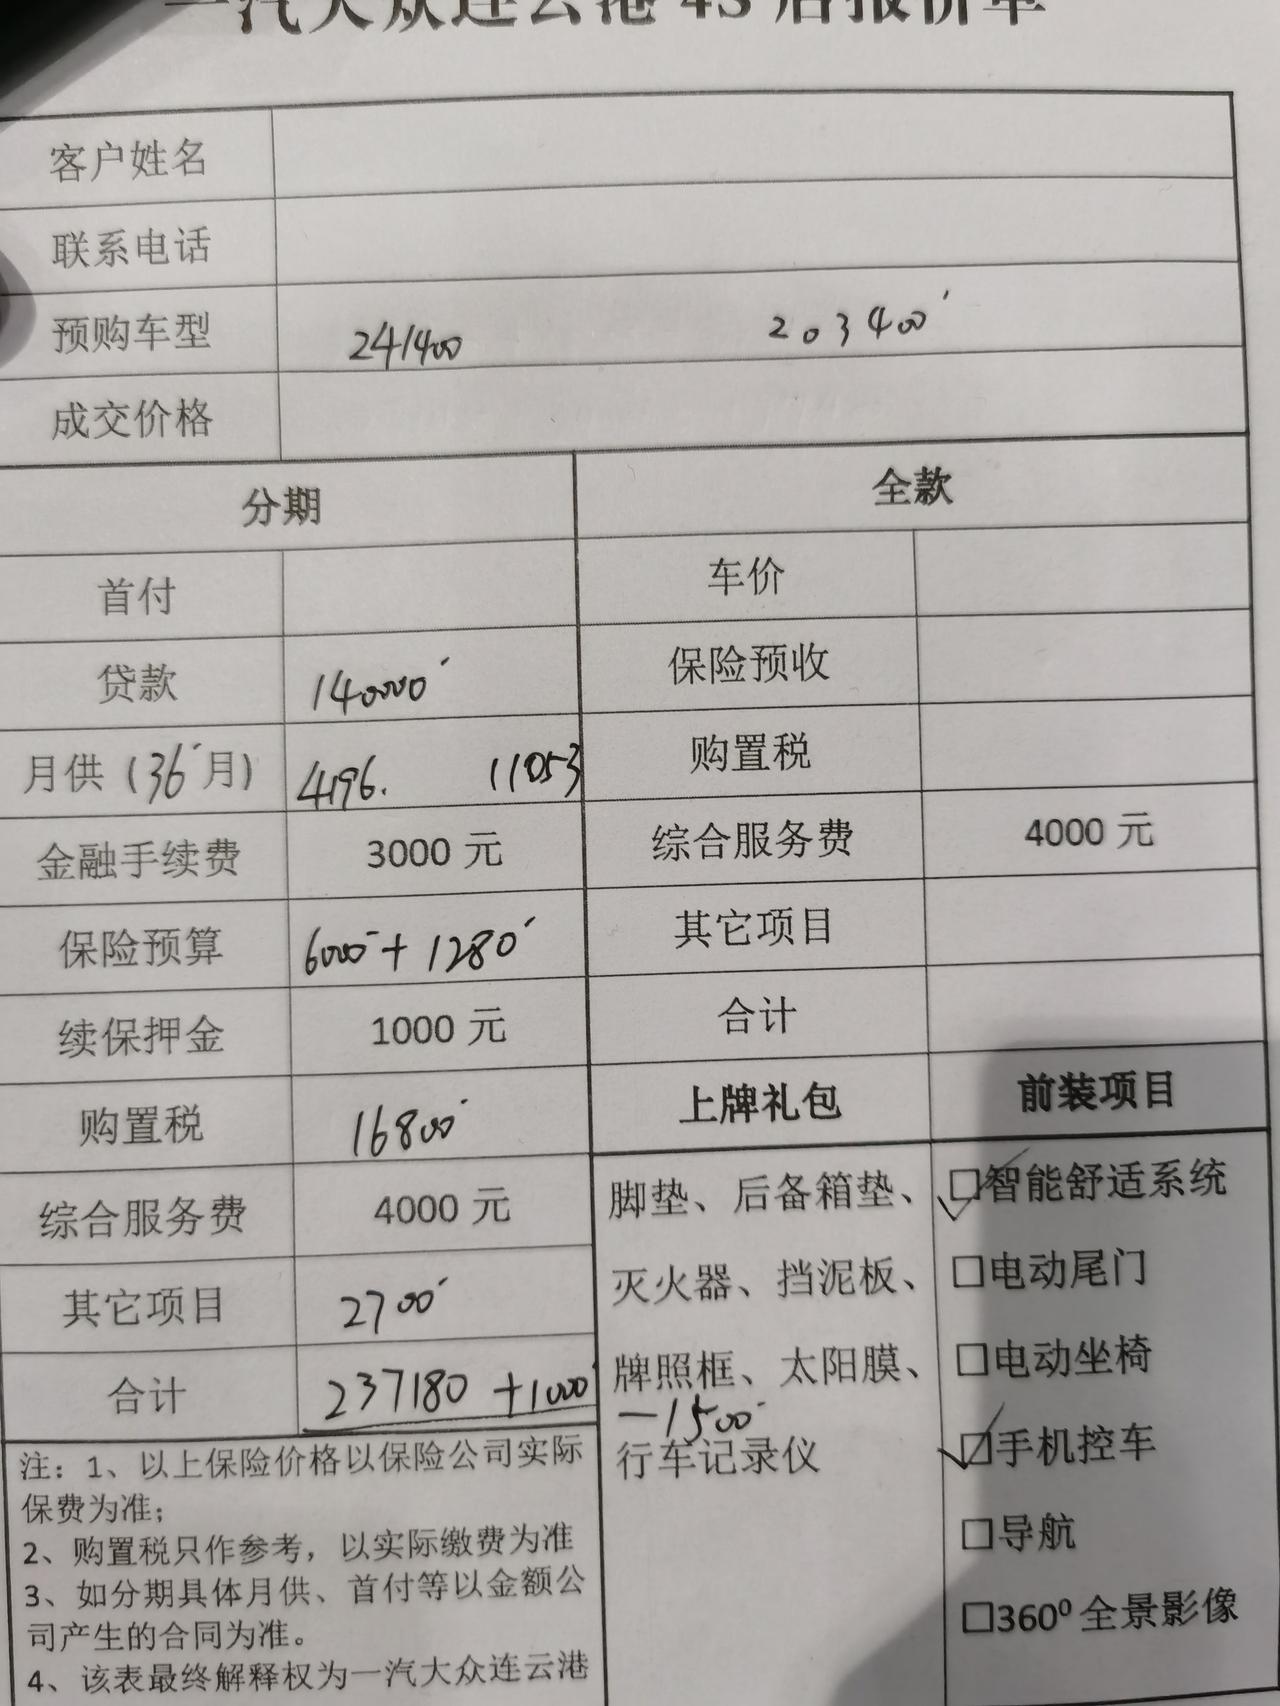 一汽大众连云港4S店报价单
客户姓名
联系电话
预购车型 241400 203400
成交价格
分期 全款
首付 车价
贷款 140000 保险预收
月供(36月) 4196. 11053 购置税
金融手续费 3000元 综合服务费 4000元
保险预算 6000+1280 其它项目
续保押金 1000元 合计
购置税 16800 上牌礼包 前装项目
综合服务费 4000元 脚垫、后备箱垫、 □智能舒适系统
其它项目 2700 灭火器、挡泥板、 □电动尾门
合计 237180+1000 牌照框、太阳膜、 □电动坐椅
-1500
行车记录仪 □手机控车
□导航
□360⁰全景影像
注：1、以上保险价格以保险公司实际
保费为准；
2、购置税只作参考，以实际缴费为准
3、如分期具体月供、首付等以金额公
司产生的合同为准。
4、该表最终解释权为一汽大众连云港